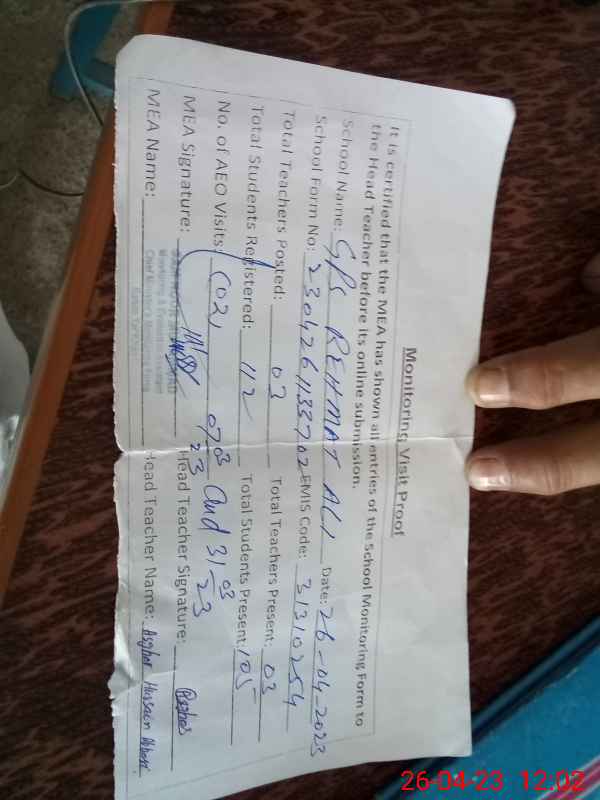 Monitoring Visit Proof
It is certified that the MEA has shown all entries of the School Monitoring Form to
the Head Teacher before its online submission.
School Name: GPS REHMAT ALI Date: 26-04-2023
School Form No: 2304261133702 EMIS Code: 31310254
Total Teachers Posted: 03 Total Teachers Present: 03
Total Students Registered: 112 Total Students Present: 105
No. of AEO Visits: (02, 07 03 23 and 31 03 23
MEA Signature: Head Teacher Signature:
MEA Name: Head Teacher Name: Asghar Hussain
26-04-23 12:02